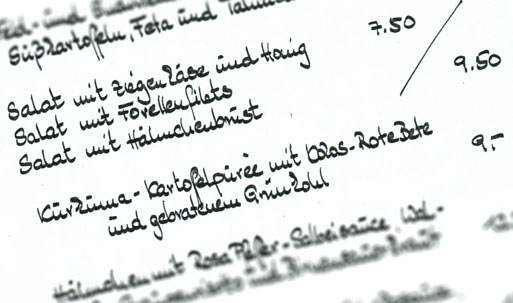 Feld- und
Süßkartoffeln, Feta und
7.50 /
Salat mit Ziegenkäse und Honig
Salat mit Forellenfilets 9.50
Salat mit Hähnchenbrust
Kurkuma-Kartoffelpüree mit Kokos-Rote Bete 9,-
und gebratenem Grünkohl
Hähnchen mit Rosa Pfeffer-Salbeisauce